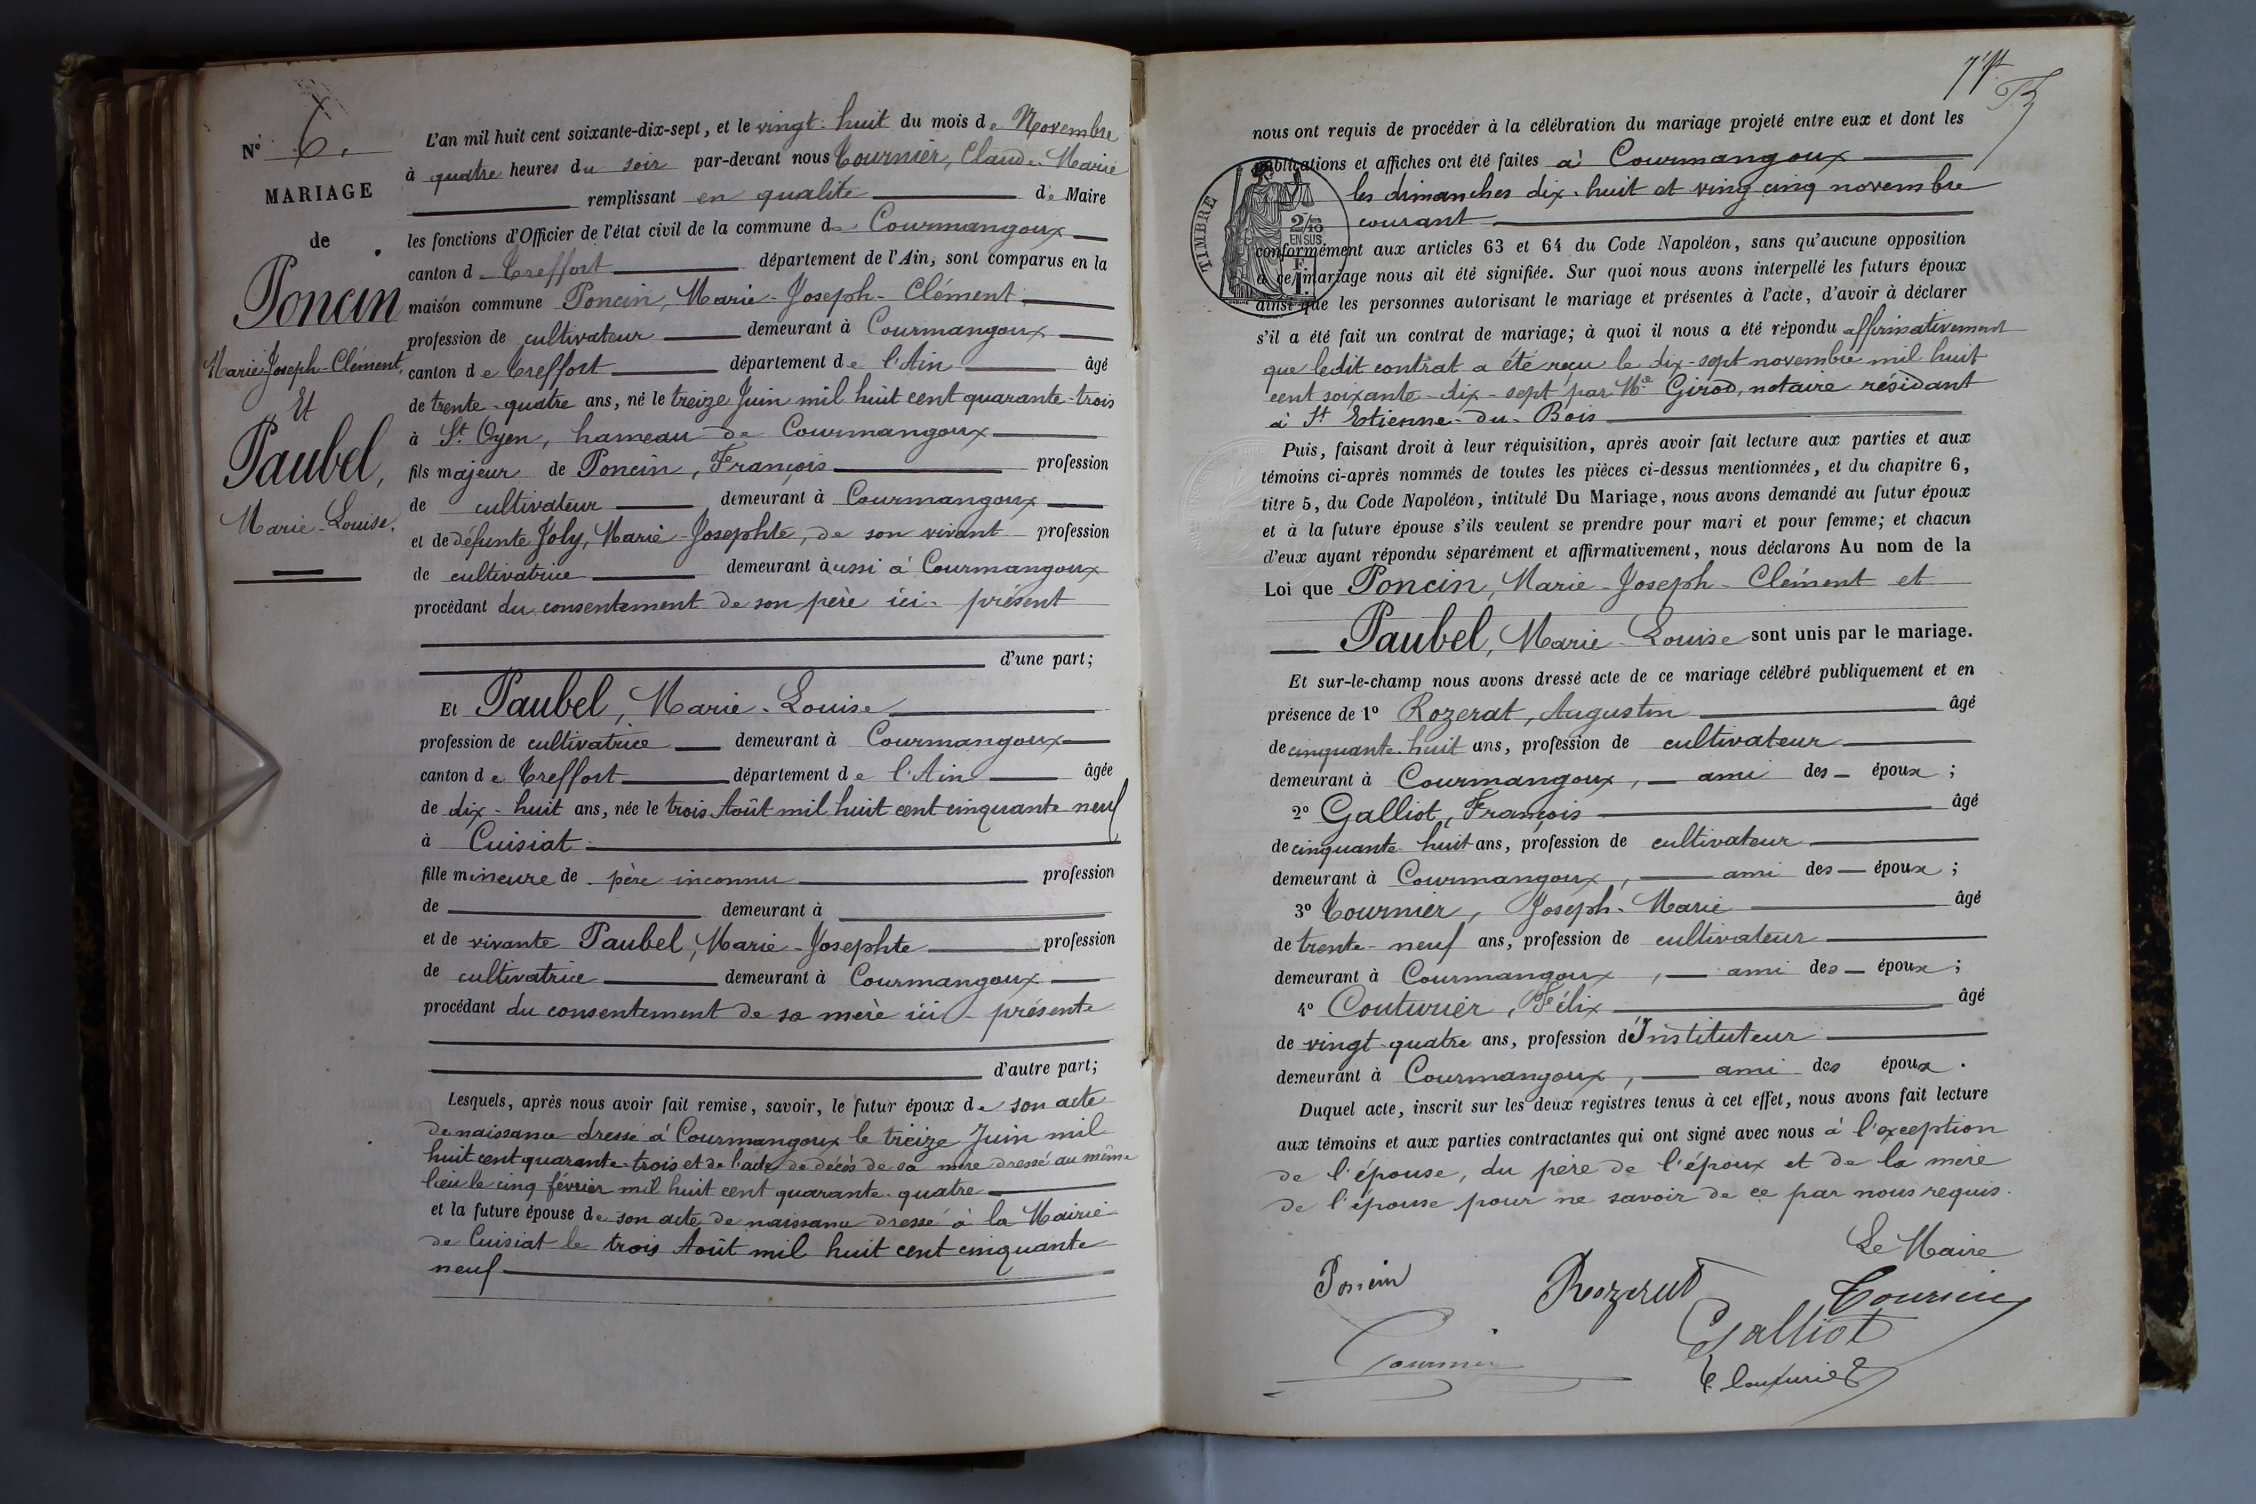 N° 6.
MARIAGE
de
Poncin
Marie-Joseph-Clément,
Et
Paubel,
Marie-Louise.
L'an mil huit cent soixante-dix-sept, et le vingt-huit du mois de Novembre
à quatre heures du soir par-devant nous Tournier, Claude-Marie
remplissant en qualité de Maire
les fonctions d'Officier de l'état civil de la commune de Courmangoux
canton d Treffort département de l'Ain, sont comparus en la
maison commune Poncin, Marie-Joseph-Clément
profession de cultivateur demeurant à Courmangoux
canton de Treffort département de l'Ain âgé
de trente-quatre ans, né le treize Juin mil huit cent quarante-trois
à St. Oyen, hameau de Courmangoux
fils majeur de Poncin, François profession
de cultivateur demeurant à Courmangoux
et de défunte Joly, Marie-Josephte, de son vivant profession
de cultivatrice demeurant aussi à Courmangoux
procédant du consentement de son père ici-présent
d'une part;
Et Paubel, Marie-Louise
profession de cultivatrice demeurant à Courmangoux
canton de Treffort département de l'Ain âgée
de dix-huit ans, née le trois Août mil huit cent cinquante neuf
à Cuisiat
fille mineure de père inconnu profession
de demeurant à
et de vivante Paubel, Marie-Josephte profession
de cultivatrice demeurant à Courmangoux
procédant du consentement de sa mère ici-présente
d'autre part;
Lesquels, après nous avoir fait remise, savoir, le futur époux de son acte
de naissance dressé à Courmangoux le treize Juin mil
huit cent quarante-trois et de l'acte de décès de sa mère dressé au même
lieu le cinq février mil huit cent quarante-quatre
et la future épouse de son acte de naissance dressé à la Mairie
de Cuisiat le trois Août mil huit cent cinquante
neuf
nous ont requis de procéder à la célébration du mariage projeté entre eux et dont les
publications et affiches ont été faites à Courmangoux
les dimanches dix-huit et ving cinq novembre
courant
TIMBRE
2/10
EN SUS
conformément aux articles 63 et 64 du Code Napoléon, sans qu'aucune opposition
à ce mariage nous ait été signifiée. Sur quoi nous avons interpellé les futurs époux
ainsi que les personnes autorisant le mariage et présentes à l'acte, d'avoir à déclarer
s'il a été fait un contrat de mariage; à quoi il nous a été répondu affirmativement
que ledit contrat a été reçu le dix-sept novembre mil huit
cent soixante-dix-sept par Me Girod, notaire résidant
à St Etienne-du-Bois
Puis, faisant droit à leur réquisition, après avoir fait lecture aux parties et aux
témoins ci-après nommés de toutes les pièces ci-dessus mentionnées, et du chapitre 6,
titre 5, du Code Napoléon, intitulé Du Mariage, nous avons demandé au futur époux
et à la future épouse s'ils veulent se prendre pour mari et pour femme; et chacun
d'eux ayant répondu séparément et affirmativement, nous déclarons Au nom de la
Loi que Poncin, Marie-Joseph-Clément et
Paubel, Marie-Louise sont unis par le mariage.
Et sur-le-champ nous avons dressé acte de ce mariage célébré publiquement et en
présence de 1° Rozerat, Augustin âgé
de cinquante-huit ans, profession de cultivateur
demeurant à Courmangoux, ami des époux;
2° Galliot, François âgé
de cinquante huit ans, profession de cultivateur
demeurant à Courmangoux, ami des époux;
3° Tournier, Joseph-Marie âgé
de trente-neuf ans, profession de cultivateur
demeurant à Courmangoux, ami des époux;
4° Couturier, Félix âgé
de vingt-quatre ans, profession d'Instituteur
demeurant à Courmangoux, ami des époux.
Duquel acte, inscrit sur les deux registres tenus à cet effet, nous avons fait lecture
aux témoins et aux parties contractantes qui ont signé avec nous à l'exception
de l'épouse, du père de l'époux et de la mère
de l'épouse pour ne savoir de ce par nous requis.
Le Maire
Poncin Rozerat Tournier
Galliot
Tournier
F. Couturier